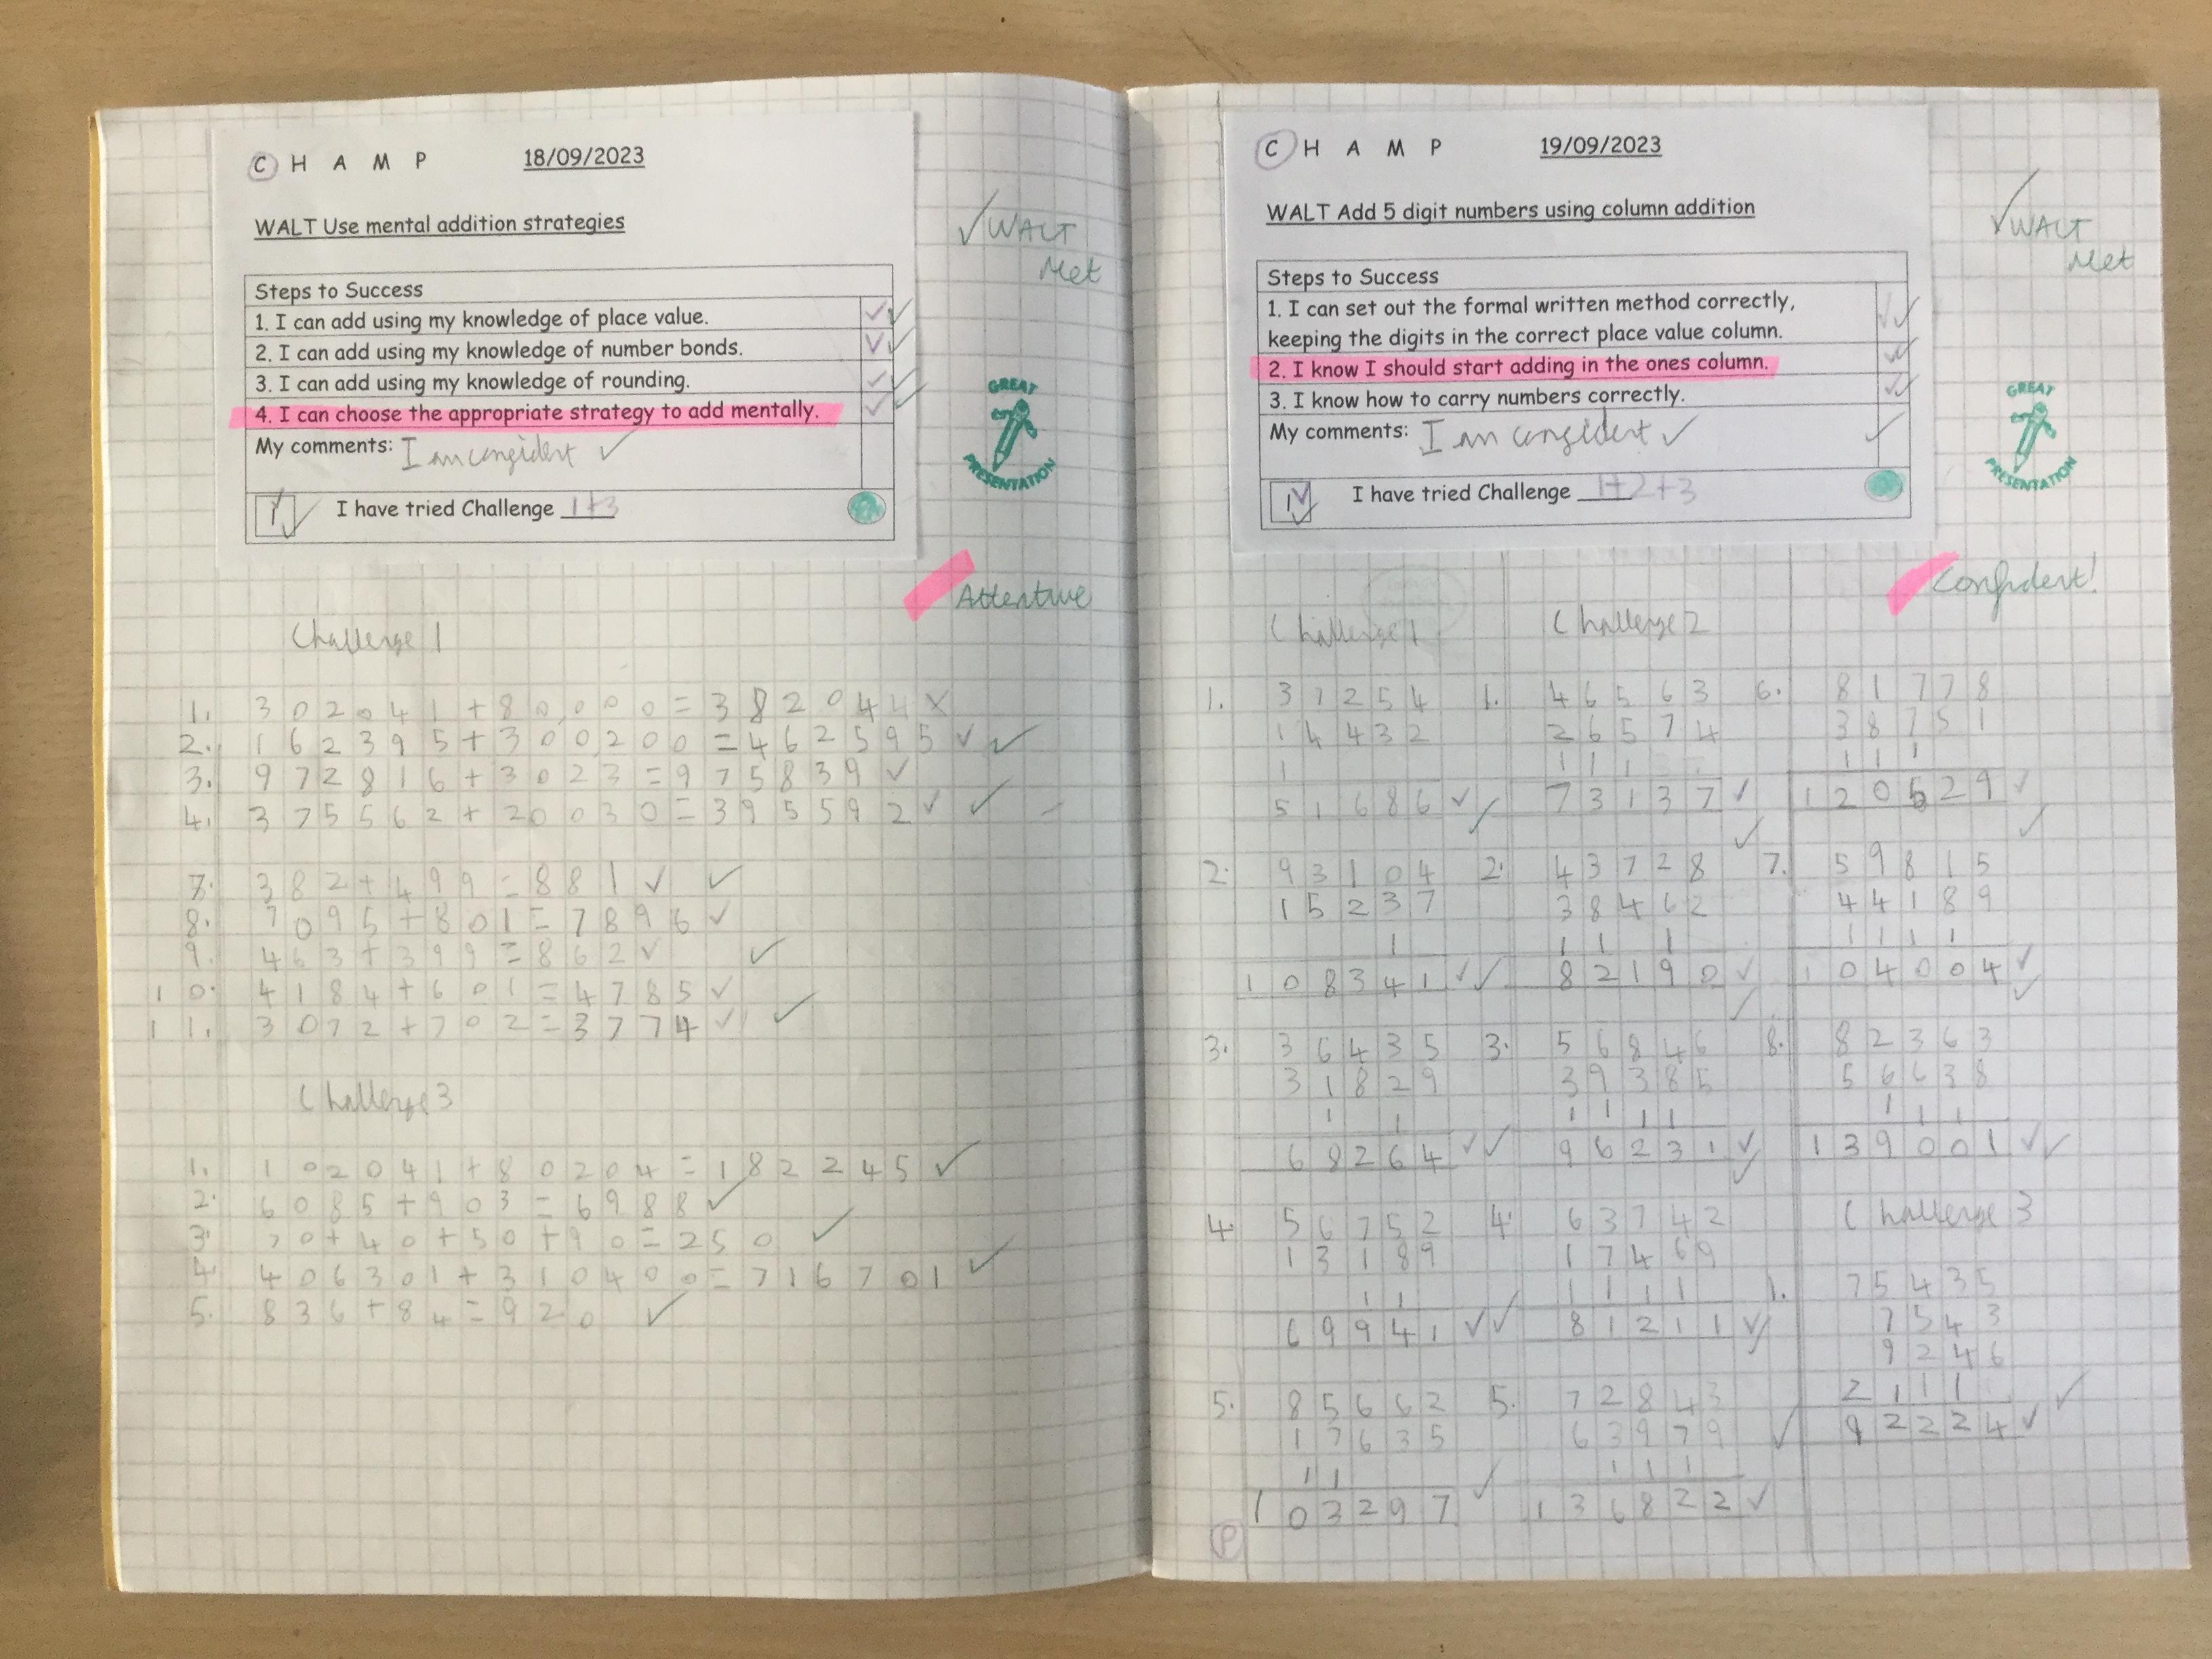 C H A M P 18/09/2023
WALT Use mental addition strategies
Steps to Success
1. I can add using my knowledge of place value.
2. I can add using my knowledge of number bonds.
3. I can add using my knowledge of rounding.
4. I can choose the appropriate strategy to add mentally.
My comments: I am confident
I have tried Challenge 1+3
WALT
Met
GREAT
PRESENTATION
Attentive
Challenge 1
1. 302041+80,000=382044
2. 162395+300,200=462595
3. 972816+3023=975839
4. 375562+20030=395592
7. 382+499=881
8. 7095+801=7896
9. 463+399=862
10. 4184+601=4785
11. 3072+702=3774
Challenge 3
1. 102041+80204=182245
2. 6085+903=6988
3. 70+40+50+90=250
4. 406301+310400=716701
5. 836+84=920
C H A M P 19/09/2023
WALT Add 5 digit numbers using column addition
Steps to Success
1. I can set out the formal written method correctly,
keeping the digits in the correct place value column.
2. I know I should start adding in the ones column.
3. I know how to carry numbers correctly.
My comments: I am confident
I have tried Challenge 1+2+3
WALT
Met
GREAT
PRESENTATION
Confident!
Challenge 1
1. 37254
14432
1
51686
2. 93104
15237
1
108341
3. 36435
31829
1 1
68264
4. 56752
13189
1 1
69941
5. 85662
17635
1 1
103297
P
Challenge 2
1. 46563
26574
1 1 1
73137
2. 43728
38462
1 1 1
82190
3. 56846
39385
1 1 1 1
96231
4. 63742
17469
1 1 1 1
81211
5. 72843
63979
1 1 1
136822
6. 81778
38751
1 1 1
120529
7. 59815
44189
1 1 1 1
104004
8. 82363
56638
1 1 1
139001
Challenge 3
1. 75435
7543
9246
2 1 1 1
92224